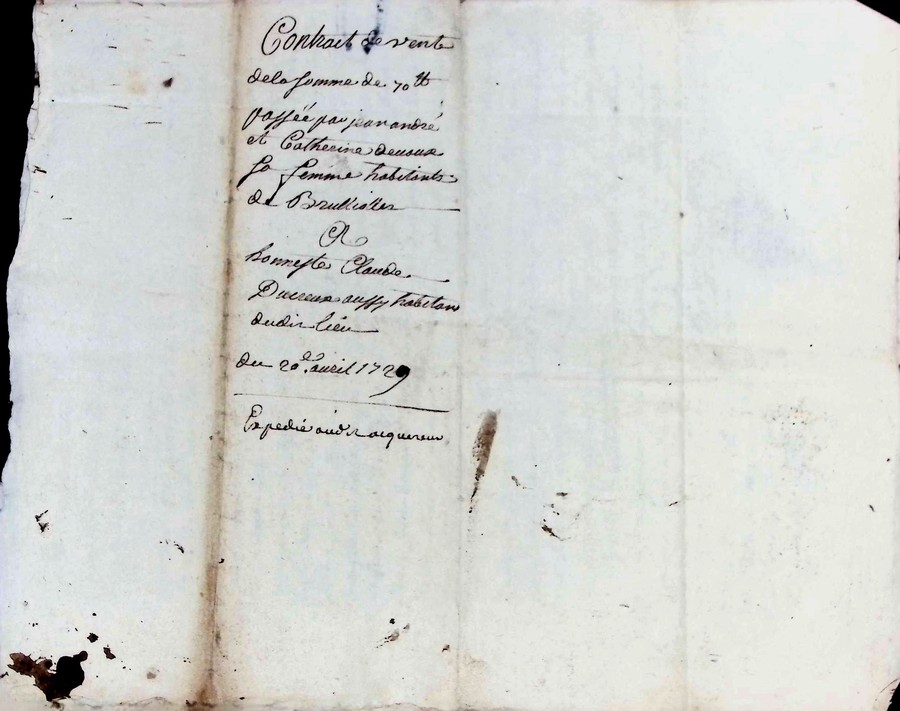 Contract de vente
dela somme de 70 ₶
passée par jean andré
et Catherine
sa femme habitants
de
A
honneste Claude
Ducreux aussy habitan
dudit lieu
du 20e. avril 1729
Expedié audit acquereur